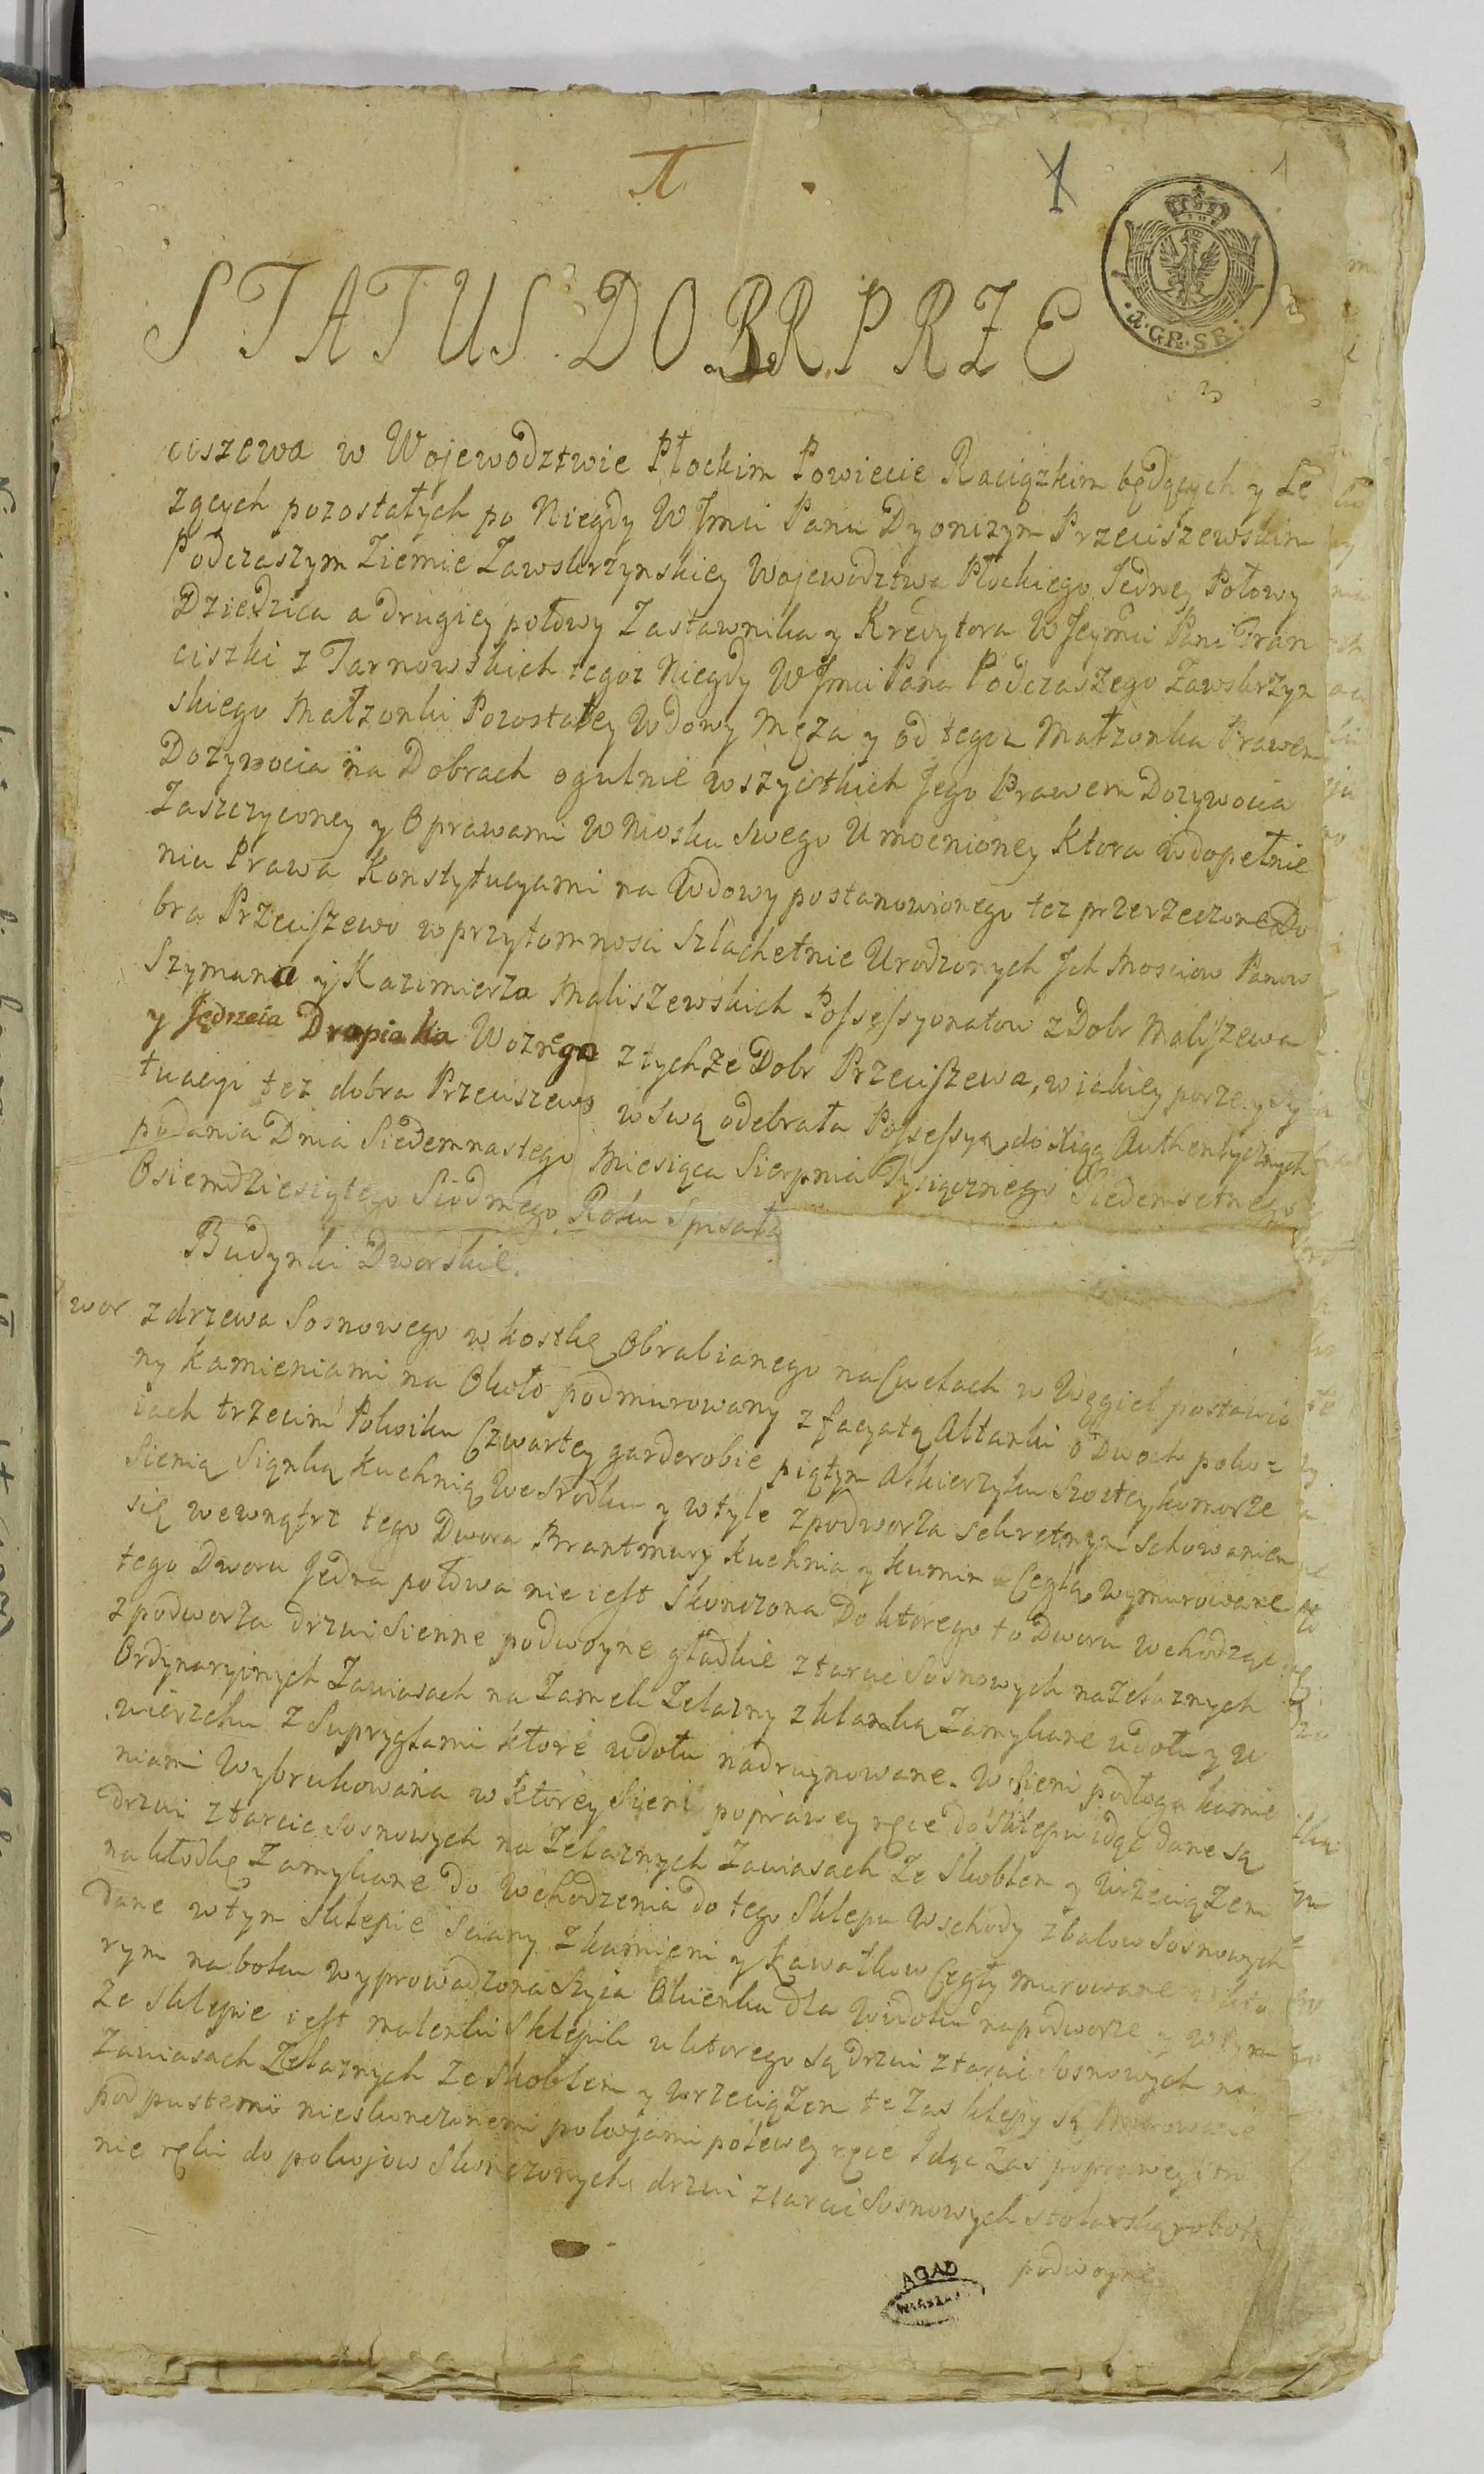 1
1
STATUS DOBR PRZE
4 GR. SR.
ciszewa w Wojewodztwie Płockim Powiecie Raciązkim będących y Le
zących pozostałych po Niegdy W Jmci Panu Dyonizym Przeciszewskim
Podczaszym Ziemie Zawskrzynskiey Wojewodztwa Płockiego Jedney Połowy
Dziedzica a drugiey połowy Zastawnika y Kredytora W Jeymci Pani Fran
ciszki z Tarnowskich tegoz Niegdy W Jmci Pana Podczaszego Zawskrzyn
skiego Małzonki Pozostałey Wdowy Męza y od tegoz Małzonka Prawem
Dozywocia na Dobrach ogulnie wszystkich Jego Prawem Dozywocia
Zaszczyconey y Oprawami Wniosku Swego Umocnioney Ktora wdopełnie
niu Prawa Konstytucyami na Wdowy postanowionego tez przerzeczone Do
bra Przeciszewo w przytomnosci Szlachetnie Urodzonych Jch Mosciow Panow
Szymana y Kazimierza Maliszewskich Possessyonatow z Dobr Maliszewa
y Jędrzeia Drapiaka Woznego z tychze Dobr Przeciszewa, w iakiey porze y Sy
tuacyi tez dobra Przeciszewo w swą odebrała Possessyą do xiąg Authentycznych
podania Dnia Siedemnastego Miesiąca Sierpnia Tysiącznego Siedemsetnego
Osiemdziesiątego Siodmego Roku Spisała
Budynki Dworskie.
wor z drzewa Sosnowego w kostkę Obrabianego na Cwelach w Węgieł postawio
ny kamieniami na Około podmurowany z facyatą Altanki o Dwoch poko=
iach trzecim Pokoiku Czwartey garderobie piątym Alkierzyku Szostey komorze
Sienią Siąnką Kuchnią We Srodku y w tyle z podworza sekretnym Schowaniem
się wewnątrz tego Dwora Brantmury Kuchnia y Kumin Cegłą wymurowane
tego Dworu Jedna połowa nie iest Skonczona Do ktorego to Dworu wchodząc
z podworza drzwi Sienne podwoyne gładkie z tarcic Sosnowych na zelaznych
Ordynaryinych Zawiasach na Zamek Zelazny z klamką Zamykane u dołu y u
wierzchu z Suprygłami ktore w dołu nadruynowane. W Sieni podłoga kamie
niami Wybrukowana w ktorey Sieni po prawey ręce do Sklepu idąc dane są
drzwi z tarcic sosnowych na Zelaznych Zawiasach Ze Skoblem y Wrzeciązem
na kłodkę Zamykane do Wchodzenia do tego Sklepu Wschody z balow sosnowych
dane w tym Sklepie Sciany z kamieni y kawałkow Cegły murowane w kto
rym na boku wyprowadzona Szyia Okienka dla Widoku na podworze y w tym
Ze Sklepie iest malenki Sklepik u ktorego są drzwi z tarcic Sosnowych na
Zawiasach Zelaznych Ze Skoblem y Wrzeciązem te zas sklepy są murowane
pod pustemi nieskonczonemi pokojami po lewey ręce Idąc Zas po prawey stro
nie ręki do pokojow Skonczonych drzwi z tarcic Sosnowych stolarską robotą
podwoyne
AGAD
WARSZAWA